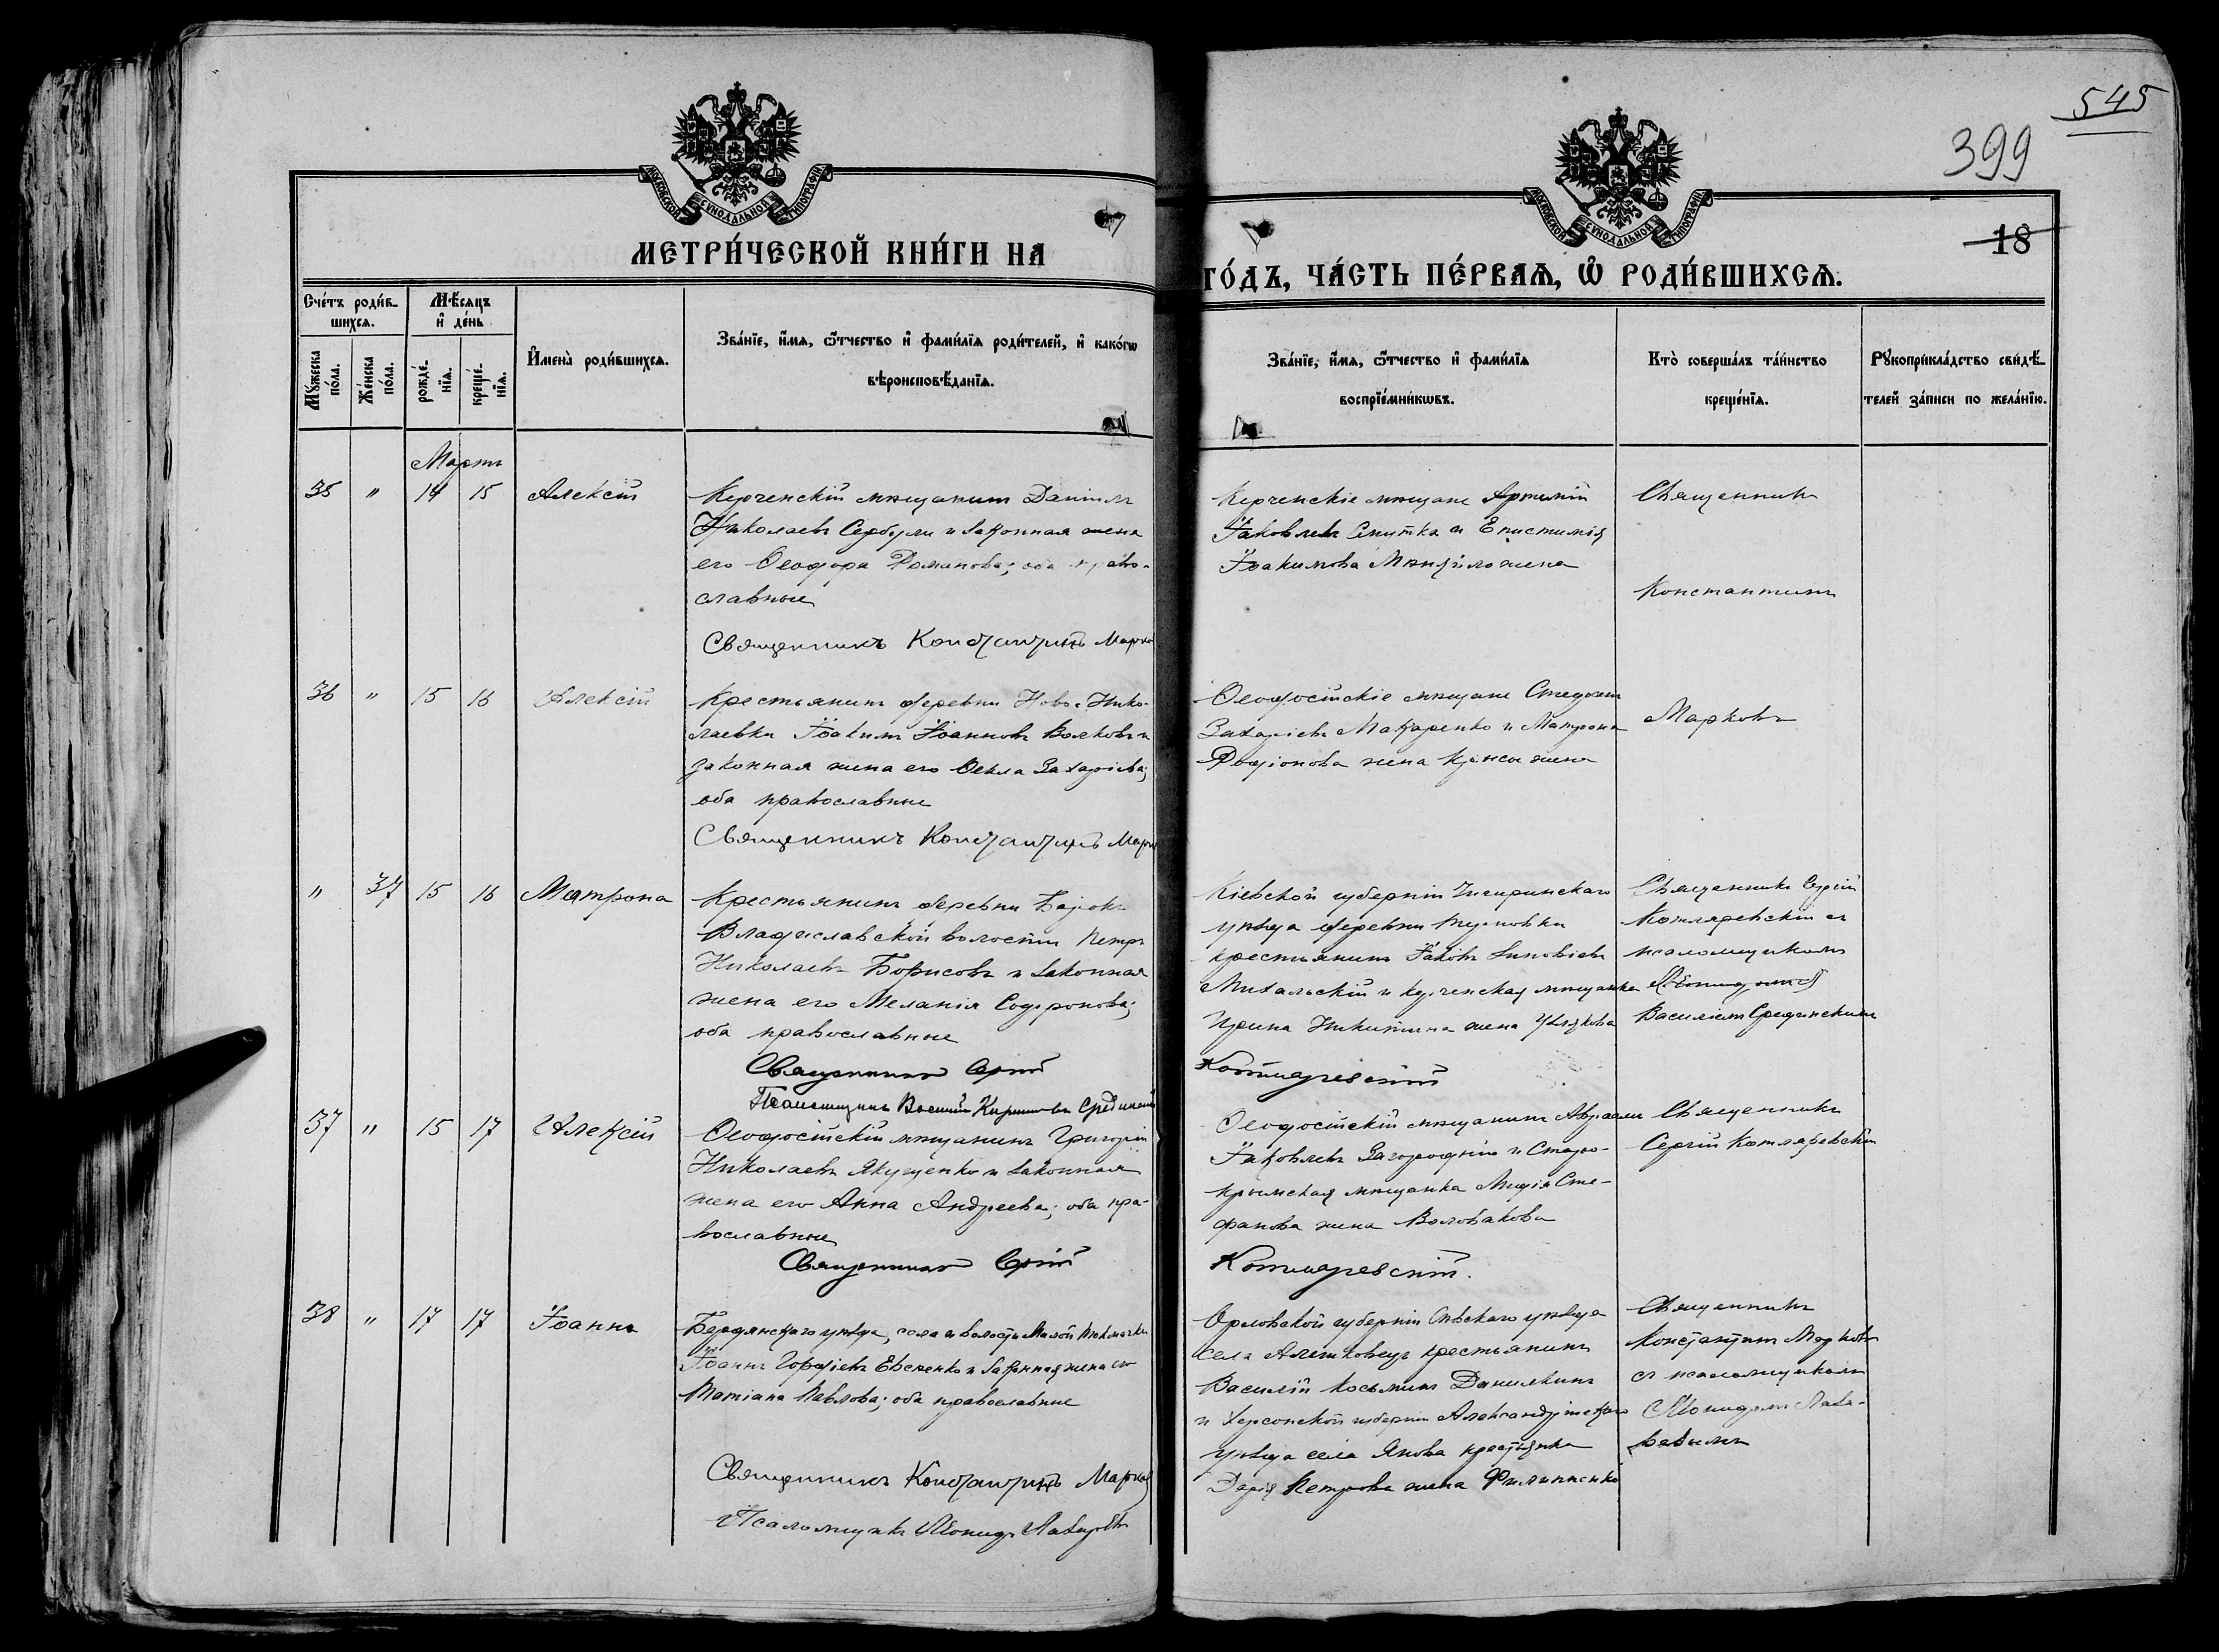 545
399
МОСКОВСКОЙ СѴНОДАЛЬНОЙ ТИПОГРАФІИ
МОСКОВСКОЙ СѴНОДАЛЬНОЙ ТИПОГРАФІИ
18
МЕТРИ́ЧЕСКОЙ КНИ́ГИ НА
ГО́ДЪ, ЧА́СТЬ ПЕ́РВАѦ, Ѽ РОДИ́ВШИХСѦ.
Сче́тъ роди́в-
шихсѧ.
Мѣ́сѧцъ
и҆ де́нь
Мꙋ́жеска
по́ла.
Же́нска
по́ла.
рожде́-
нїѧ.
креще́-
нїѧ.
И҆мена̀ роди́вшихсѧ.
Зва́нїе, и҆́мѧ, ѻ҆́тчество и҆ фами́лїѧ роди́телей, и҆ како́гѡ
вѣроисповѣ́данїѧ.
Зва́нїе, и҆́мѧ, ѻ҆́тчество и҆ фами́лїѧ
воспрїе́мникѡвъ.
Кто̀ соверша́лъ та́инство
креще́нїѧ.
Рꙋкоприкла́дство свидѣ́-
телей за́писи по жела́нїю.
Мартъ
35 " 14 15 Алексій
Керченскій мѣщанинъ Даніилъ
Николаевъ Сербули и законная жена
его Ѳеодора Романова; оба право-
славные
Священникъ Константинъ Марко
Керченскіе мѣщане Артемій
Іаковлевъ и Епистимія
Іоакимова жена
Священникъ
Константинъ
Марковъ
36 " 15 16 Алексій
Крестьянинъ деревни Ново-Нико-
лаевки Іоакимъ Іоанновъ Волковъ и
законная жена его Ѳекла Захаріева;
оба православные
Священникъ Константинъ Марк
Ѳеодосійскіе мѣщане Стефанъ
Захаріевъ Макаренко и Матрона
Родіонова жена
" 37 15 16 Матрона
Крестьянинъ деревни
Владиславской волости Петръ
Николаевъ Борисовъ и законная
жена его Меланія Софронова;
оба православные
Священникъ Сергій
Псаломщикъ Василій Срединскій
Кіевской губерніи Чигиринскаго
уѣзда деревни
крестьянинъ Іаковъ Зиновіевъ
Михальскій и керченская мѣщанка
Ирина Никитина жена
Котляревскій
Священникъ Сергій
Котляревскій съ
псаломщикомъ
Василіемъ Срединскимъ
37 " 15 17 Алексій
Ѳеодосійскій мѣщанинъ Григорій
Николаевъ Якущенко и законная
жена его Анна Андреева; оба пра-
вославные
Священникъ Сергій
Ѳеодосійскій мѣщанинъ Авраамъ
Іаковлевъ Загородній и Старо-
крымская мѣщанка Марія Сте-
фанова жена
Котляревскій.
Священникъ
Сергій Котляревскій
38 " 17 17 Іоаннъ
Бердянскаго уѣзда, села и волости Малой Токмачки
Іоаннъ Гордіевъ Евсѣенко и законная жена его
Татіана Павлова; оба православные
Священникъ Константинъ Марков
Псаломщикъ Леонидъ Лазаревъ
Орловской губерніи Сѣвскаго уѣзда
села крестьянинъ
Василій Косьминъ Данилкинъ
и Херсонской губерніи Александрійскаго
уѣзда села Янова крестьянка
Дарія Петрова жена Филипенко
Священникъ
Константинъ Марковъ
съ псаломщикомъ
Леонидомъ Лаза-
ревымъ